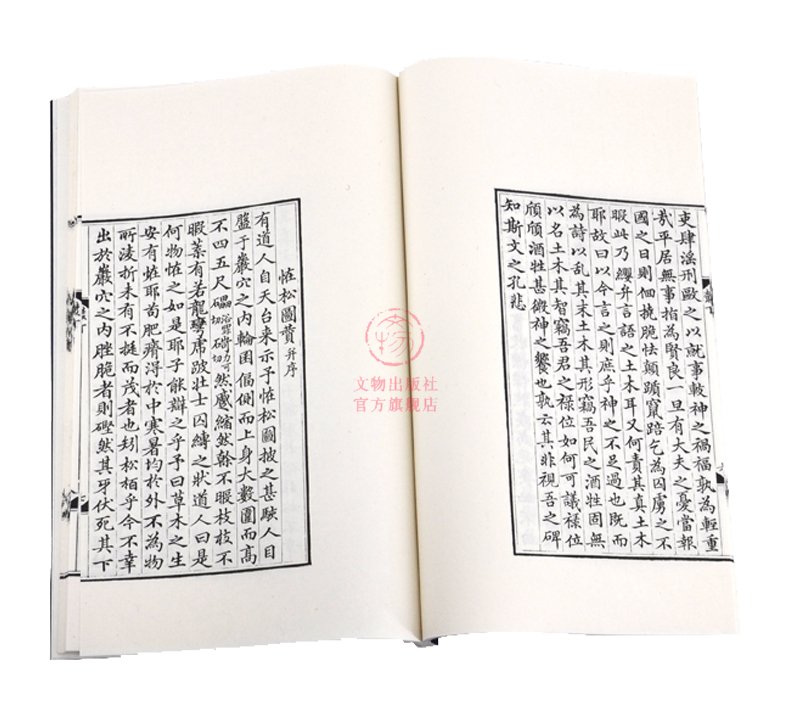 吏肆滛刑歐之以就事較神之禍福孰為輕重
㢤平居無事指為賢良一旦有大夫之憂當報
國之日則佪撓脆怯顛躓竄踣乞為囚虜之不
暇此乃纓弁言語之土木耳又何責其真土木
耶故曰以今言之則庶乎神之不足過也既而
為詩以乱其末土木其形竊吾民之酒牲固無
以名土木其智竊吾君之祿位如何可議祿位
頎頎酒牲甚微神之饗也孰云其非視吾之碑
知斯文之孔悲
恠松圖賛并序
有道人自天台来示予恠松圖披之甚駭人目
盤于巖穴之内輪囷偪側而上身大數圍而高
不四五尺然蹙縮然幹不暇枝枝不
暇葉有若龍攣虎跛壯士囚縛之狀道人曰是
何物恠之如是耶子能辯之乎予曰草木之生
安有恠耶苟肥瘠淂於中寒暑均於外不為物
所凌折未有不挺而茂者也矧松栢乎今不幸
出於巖穴之内脞脆者則磴然其牙伏死其下
文物出版社
官方旗舰店